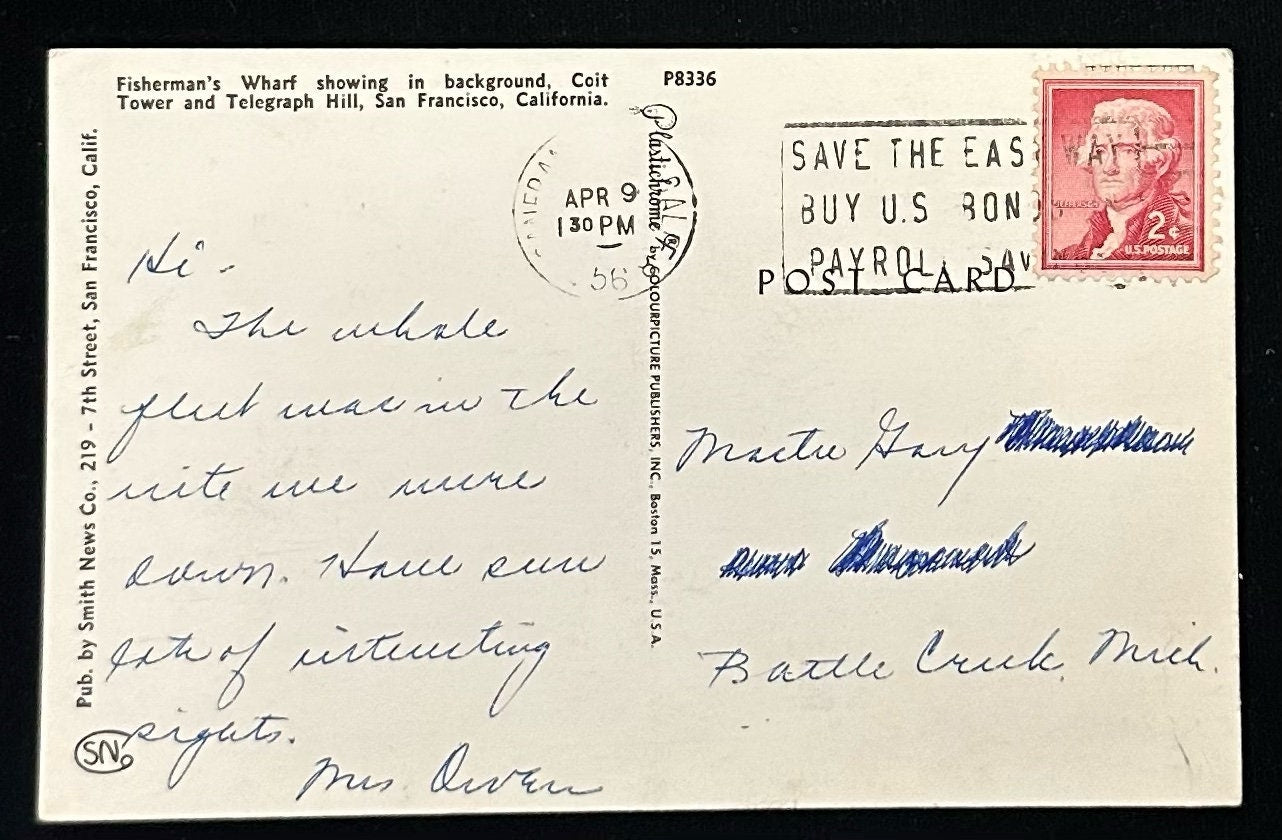 Fisherman's Wharf showing in background, Coit
Tower and Telegraph Hill, San Francisco, California.
P8336
Pub. by Smith News Co., 219 - 7th Street, San Francisco, Calif.
SN
Plastichrome by COLOURPICTURE PUBLISHERS, INC., Boston 15, Mass., U.S.A.
CALIF
APR 9
1 30 PM
56
SAVE THE EASY WAY!
BUY U.S BON
PAYROLL SAV
JEFFERSON
2¢
U.S. POSTAGE
POST CARD
Hi -
The whole
fleet was in the
nite we were
down. Have seen
lots of interesting
sights.
Mrs Owen
Master Gary
Battle Creek, Mich.